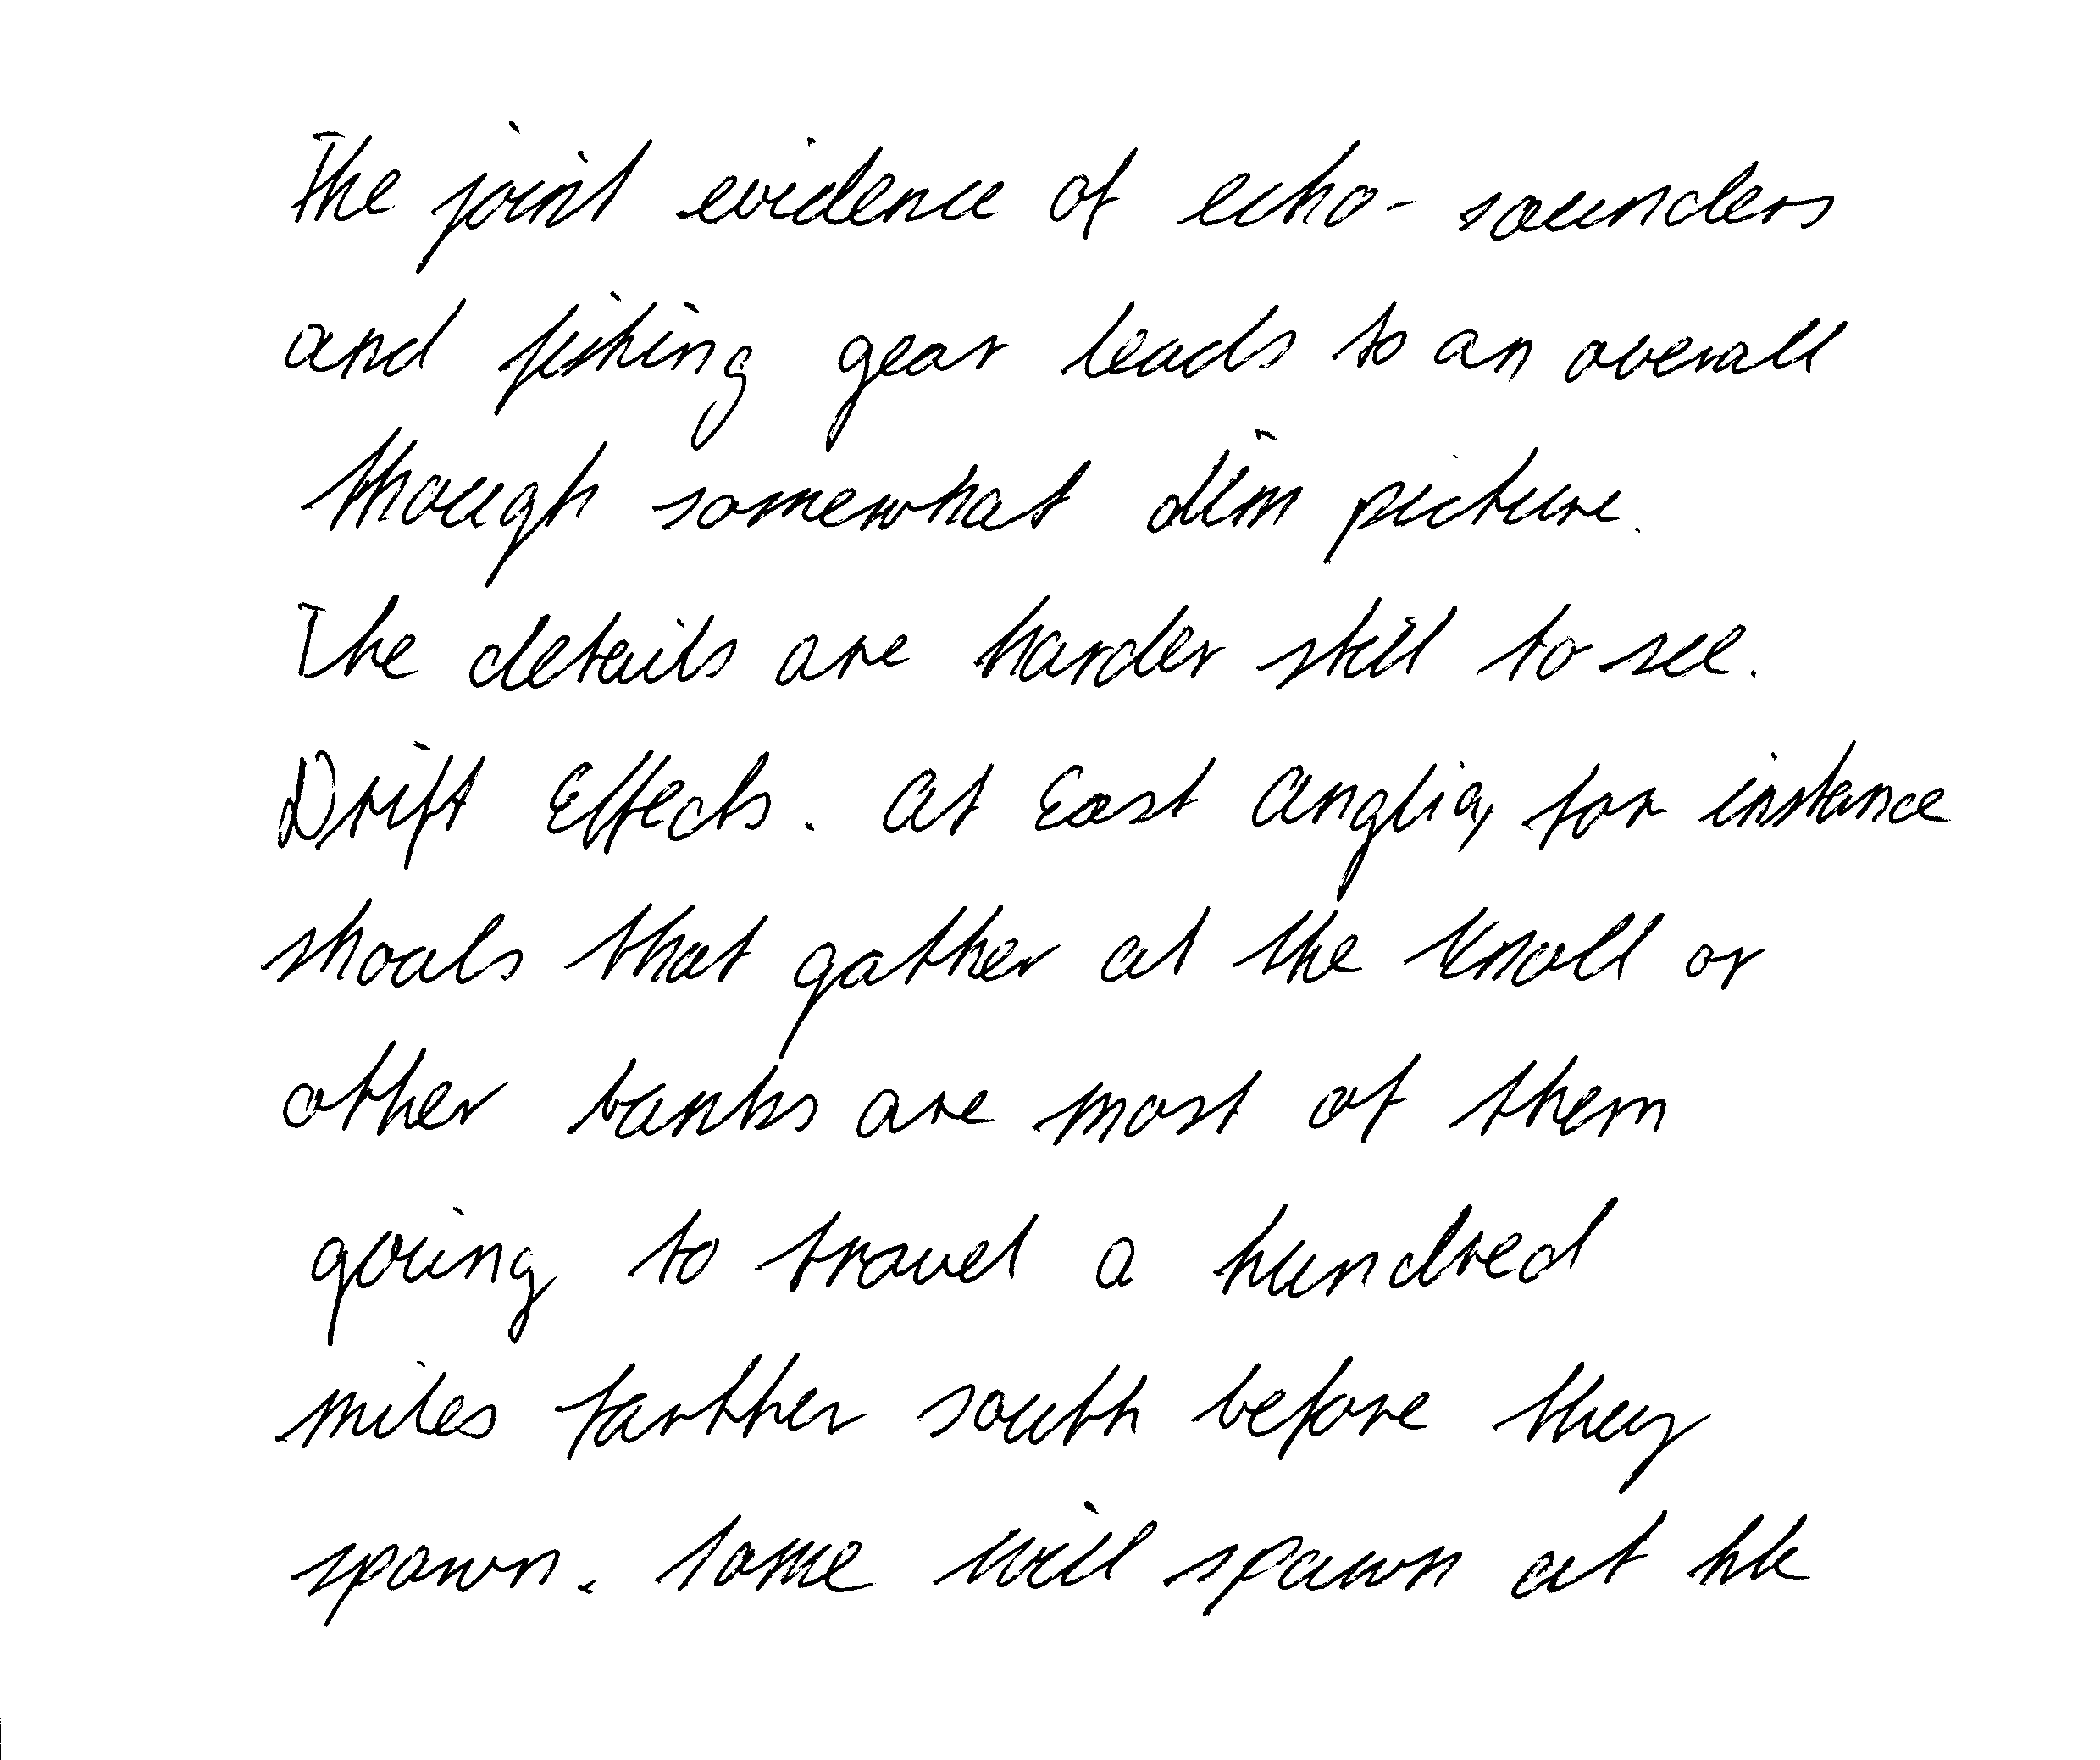 The joint evidence of echo-sounders
and fishing gear leads to an overall
though somewhat dim picture.
The details are harder still to see.
Drift Effects. At East Anglia, for instance
shoals that gather at the Knoll or
other banks are most of them
going to travel a hundred
miles farther south before they
spawn. Some will spawn at the